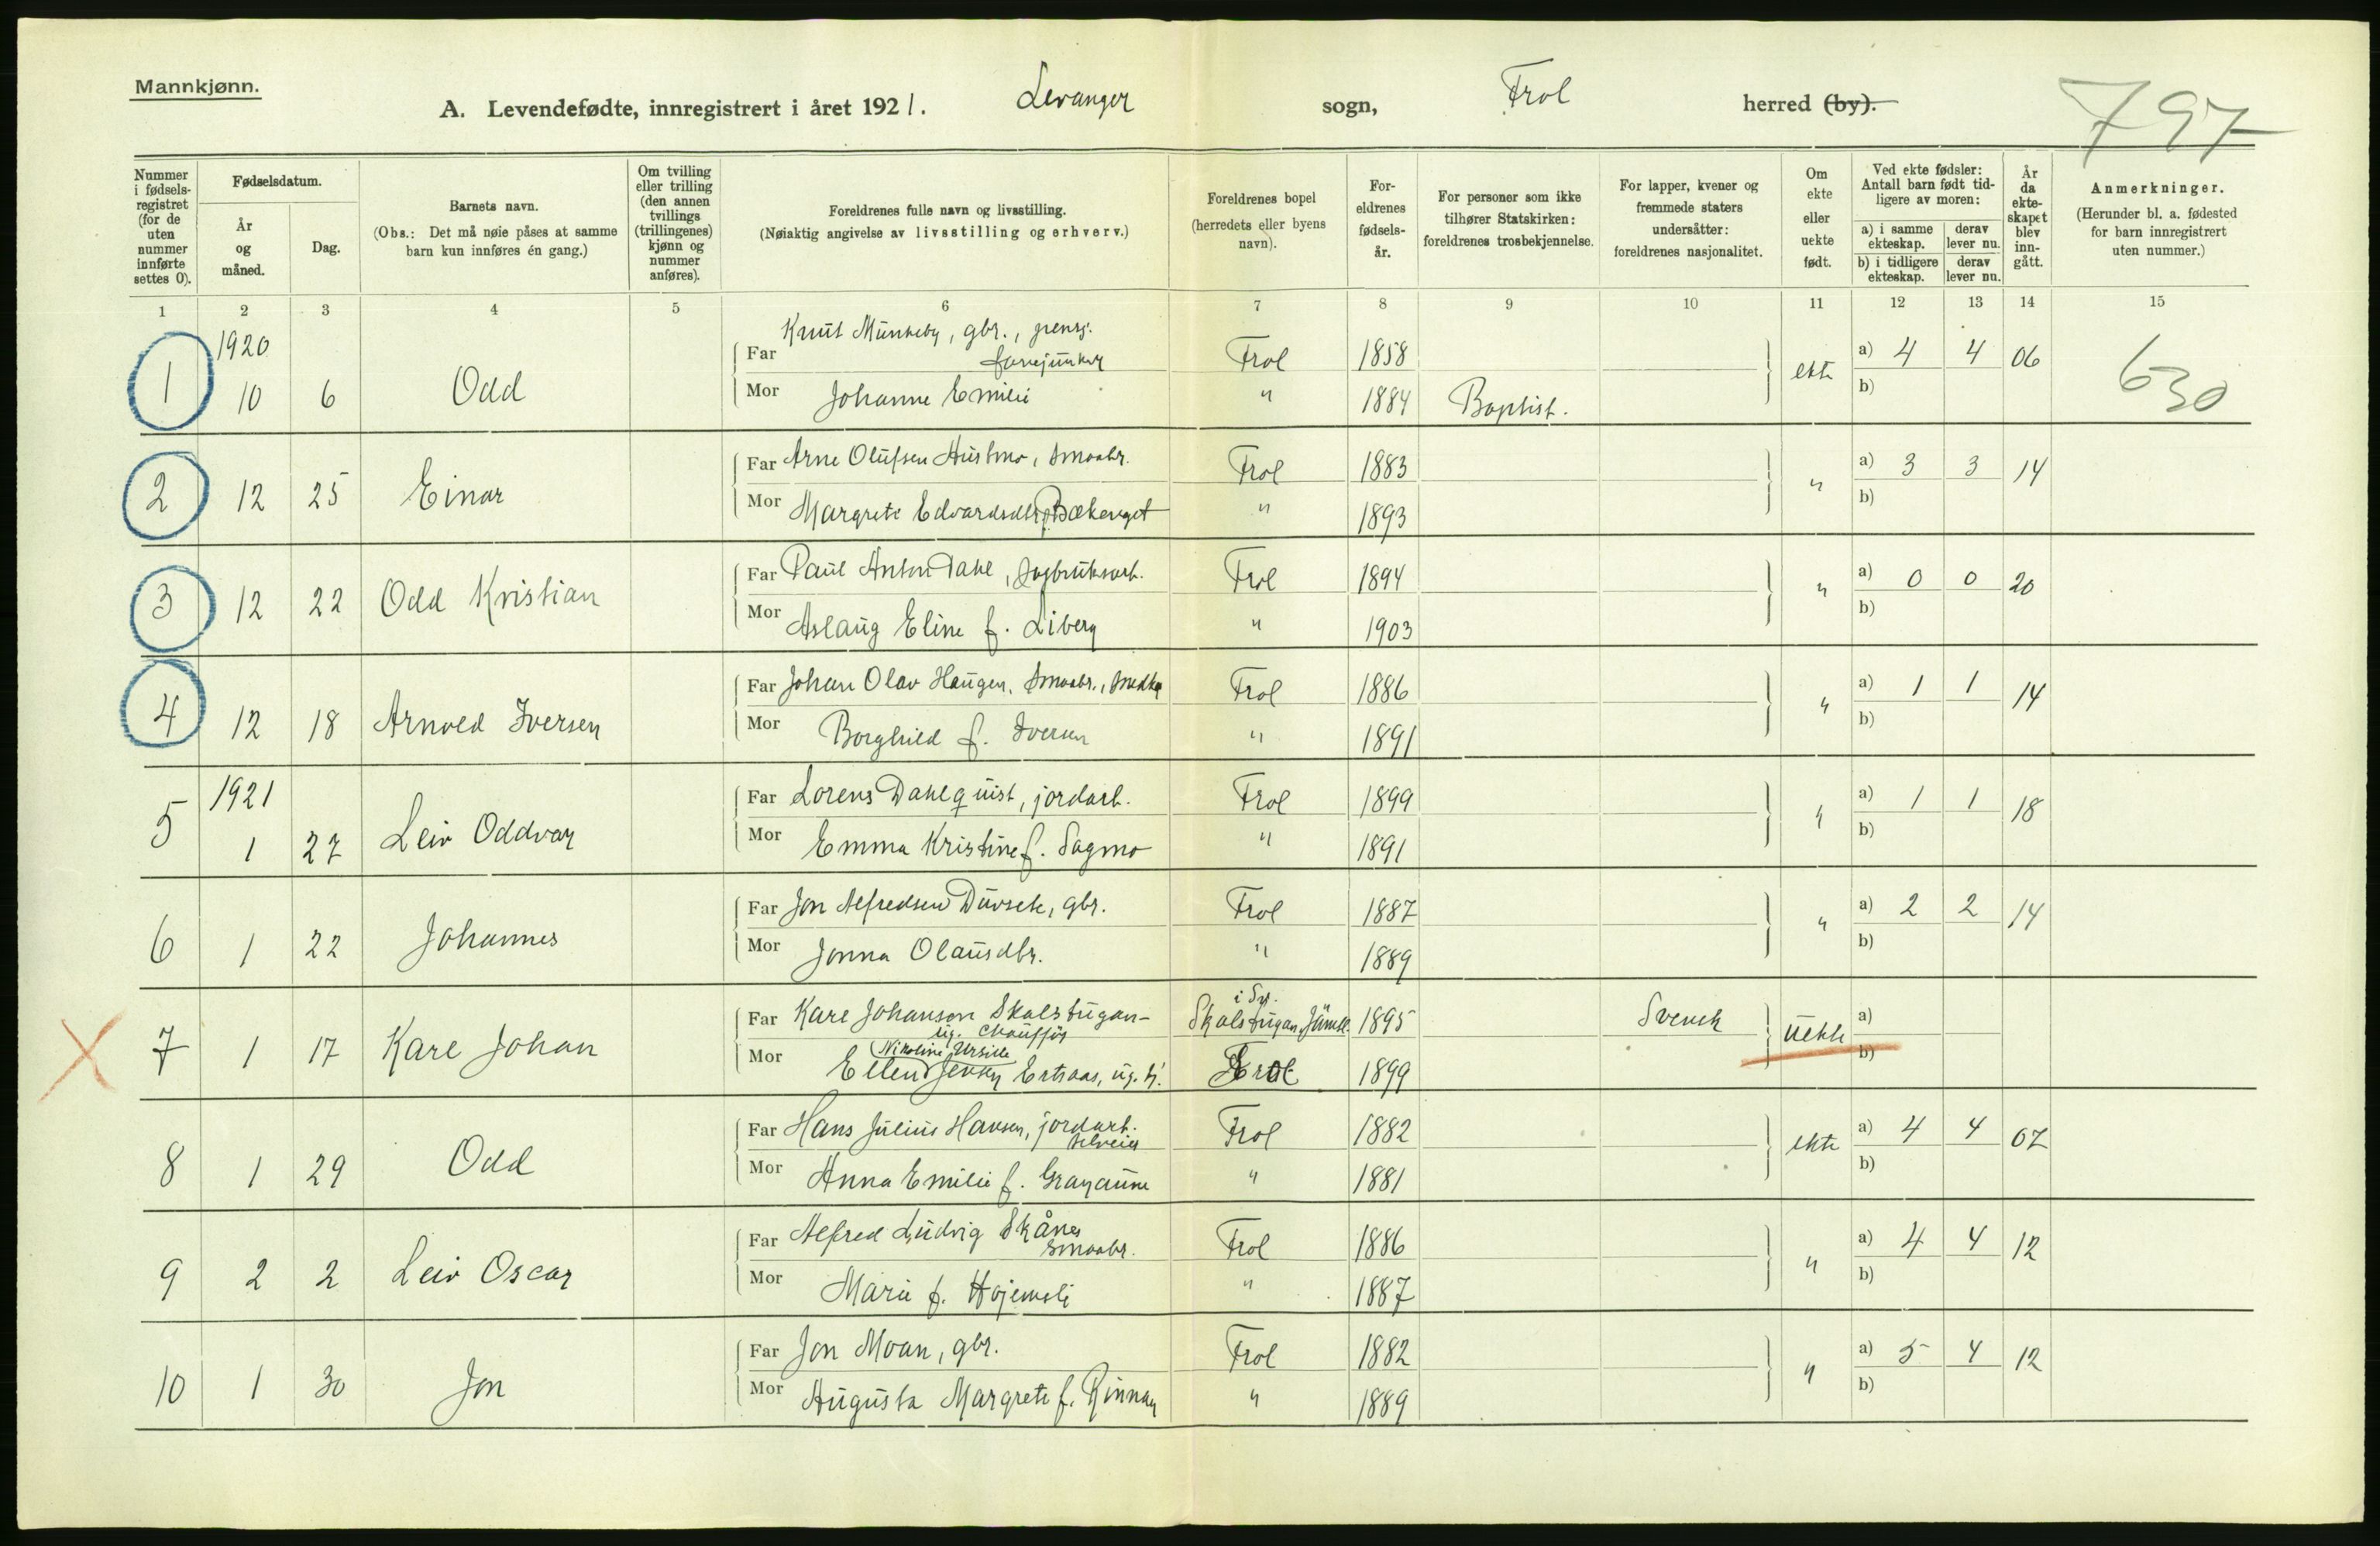 Mannkjønn.
A. Levendefødte, innregistrert i året 1921. Levanger sogn, Frol herred (by).
797
Nummer i fødsels-registret (for de uten nummer innførte settes 0).
Fødselsdatum.
År og måned.
Dag.
Barnets navn.
(Obs.: Det må nøie påses at samme barn kun innføres én gang.)
Om tvilling eller trilling (den annen tvillings (trillingenes) kjønn og nummer anføres).
Foreldrenes fulle navn og livsstilling.
(Nøiaktig angivelse av livsstilling og erhverv.)
Foreldrenes bopel
(herredets eller byens navn).
For-eldrenes fødsels-år.
For personer som ikke tilhører Statskirken: foreldrenes trosbekjennelse.
For lapper, kvener og fremmede staters undersåtter: foreldrenes nasjonalitet.
Om ekte eller uekte født.
Ved ekte fødsler: Antall barn født tid-ligere av moren:
a) i samme ekteskap.
derav lever nu.
b) i tidligere ekteskap.
derav lever nu.
År da ekte-skapet blev inn-gått.
Anmerkninger.
(Herunder bl. a. fødested for barn innregistrert uten nummer.)
1 2 3 4 5 6 7 8 9 10 11 12 13 14 15
1920
1 10 6 Odd
Far Knut Munkeby, gbr., Frol 1858 ekte a) 4 4 06 630
Mor Johanne Emilie " 1884 Baptist. b)
2 12 25 Einar
Far Arne Olufsen Austmo, smaabr. Frol 1883 " a) 3 3 14
Mor Margrete Edvardsdtr. Bækenget " 1893 b)
3 12 22 Odd Kristian
Far Paul Anton Dahl, Frol 1894 " a) 0 0 20
Mor Aslaug Eline f. Liberg " 1903 b)
4 12 18 Arnold Iversen
Far Johan Olav Haugen, smaabr., Frol 1886 " a) 1 1 14
Mor Borghild f. Iversen " 1891 b)
1921
5 1 27 Leiv Oddvar
Far Lorens Dahlquist, jordarb. Frol 1899 " a) 1 1 18
Mor Emma Kristine f. Sagmo " 1891 b)
6 1 22 Johannes
Far Jon Alfredsen gbr. Frol 1887 " a) 2 2 14
Mor Jonna Olausdtr. " 1889 b)
7 1 17 Karl Johan
Far Karl Johanson Skalstugan - ug. chaufför i Sv. Skalstugan, Jämtl. 1895 Svensk uekte a)
Nikoline Ursille
Mor Ellen Jenny Ertsaas, ug. tj. Frol 1899 b)
8 1 29 Odd
Far Hans Julius Hansen, jordarb. selveier Frol 1882 ekte a) 4 4 07
Mor Anna Emilie f. Granaune " 1881 b)
9 2 2 Leiv Oscar
Far Alfred Ludvig Skånes smaabr. Frol 1886 " a) 4 4 12
Mor Marie f. " 1887 b)
10 1 30 Jon
Far Jon Moan, gbr. Frol 1882 " a) 5 4 12
Mor Augusta Margrete f. Rinnan " 1889 b)